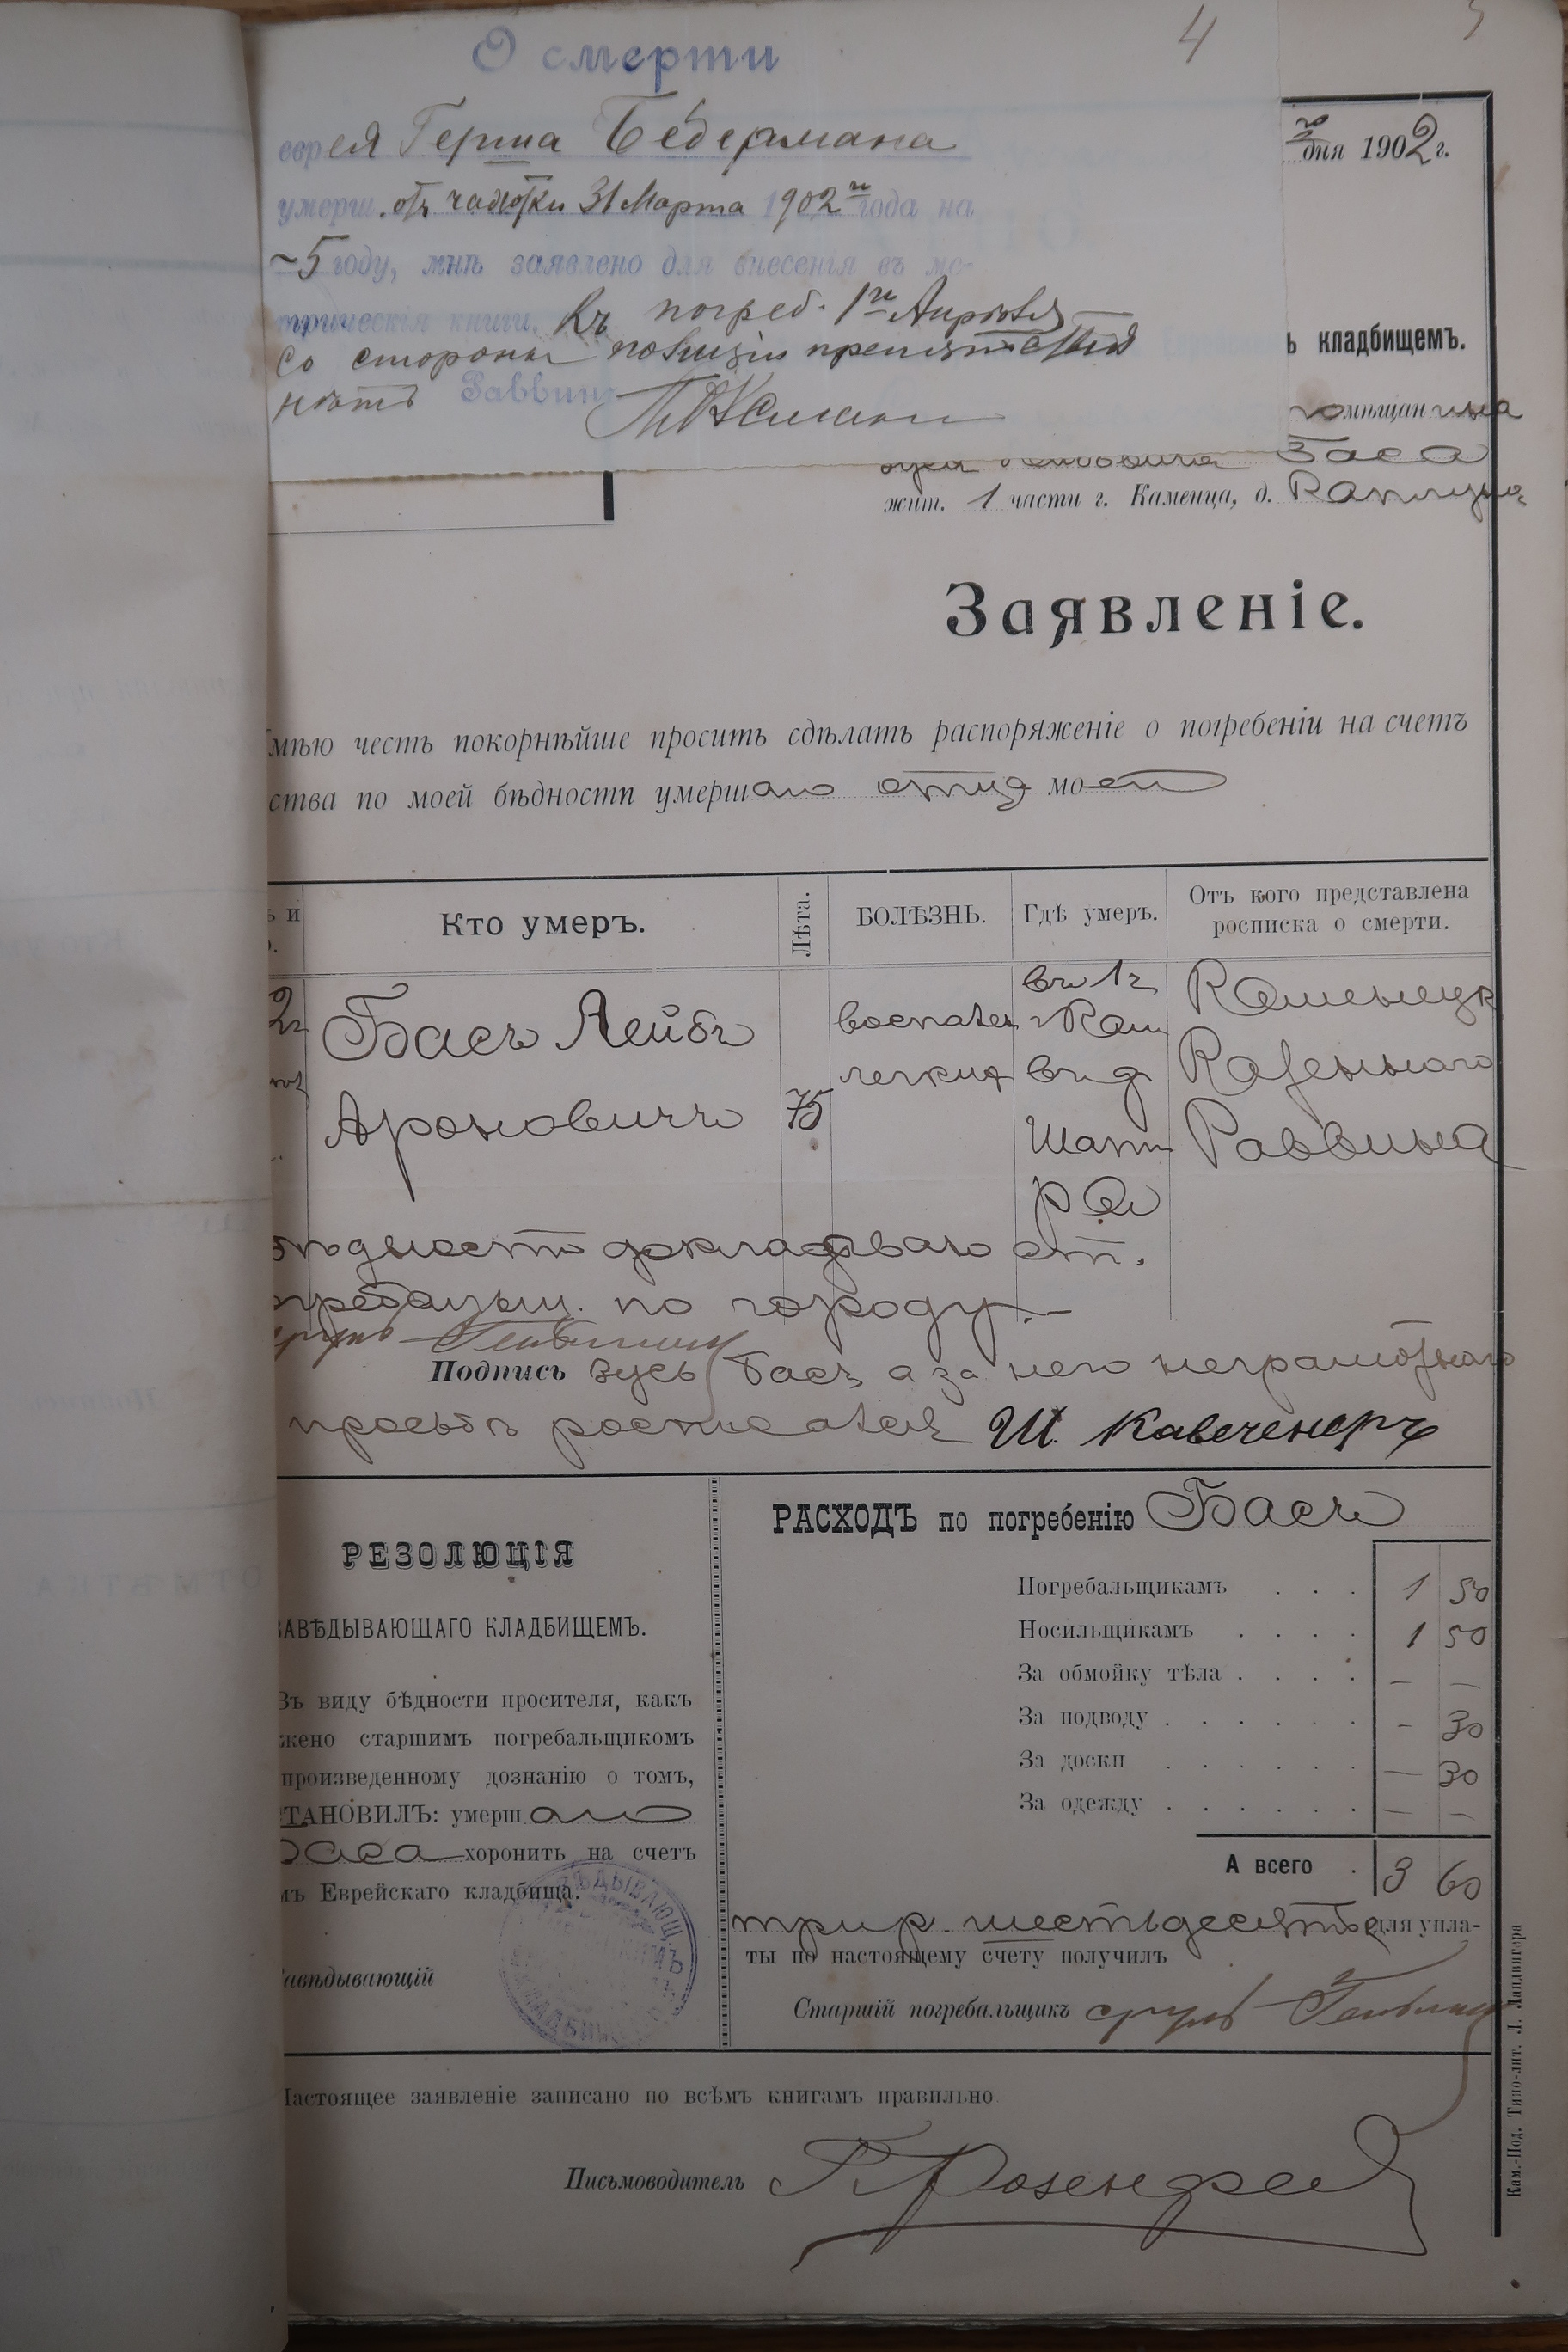 4
О смерти
еврея Герша Бедермана
умерш. отъ чахотки 31 Марта 1902 года на
5 году, мнѣ заявлено для внесенія въ ме-
трическія книги. Къ погреб. 1го Апрѣля
Со стороны полиціи препятствія
нѣтъ Раввин
дня 1902 г.
ъ кладбищемъ.
мѣщанина
Баса
жит. 1 части г. Каменца, д.
Заявленіе.
мѣю честь покорнѣйше просить сдѣлать распоряженіе о погребеніи на счетъ
ства по моей бѣдности умершаго отца моего
ь и
Кто умеръ.
Лѣта.
БОЛѢЗНЬ.
Гдѣ умеръ.
Отъ кого представлена
росписка о смерти.
Басъ Лейбъ
Ароновичъ
75
воспален
легкихъ
въ 1 ч
г Кам
въ д
Шапи
ра
Каменецк
Казеннаго
Раввина
бѣдность докладываю ст.
погребальщ. по городу.
Подпись Зусь Басъ а за него неграмотнаго
просьбѣ росписался Ш. Кавеченеръ
РЕЗОЛЮЦІЯ
ЗАВѢДЫВАЮЩАГО КЛАДБИЩЕМЪ.
Въ виду бѣдности просителя, какъ
жено старшимъ погребальщикомъ
произведенному дознанію о томъ,
СТАНОВИЛЪ: умершаго
Баса хоронить на счетъ
мъ Еврейскаго кладбища.
Завѣдывающій
РАСХОДЪ по погребенію Басъ
Погребальщикамъ . . . 1 50
Носильщикамъ . . . . 1 50
За обмойку тѣла . . . . — —
За подводу . . . . . . — 30
За доски . . . . . . — 30
За одежду . . . . . . — —
А всего . 3 60
три р. шестьдесятъ для упла-
ты по настоящему счету получилъ
Старшій погребальщикъ сруль
Настоящее заявленіе записано по всѣмъ книгамъ правильно
Письмоводитель
Кам.-Под. Типо-лит. Л. Ландвигера